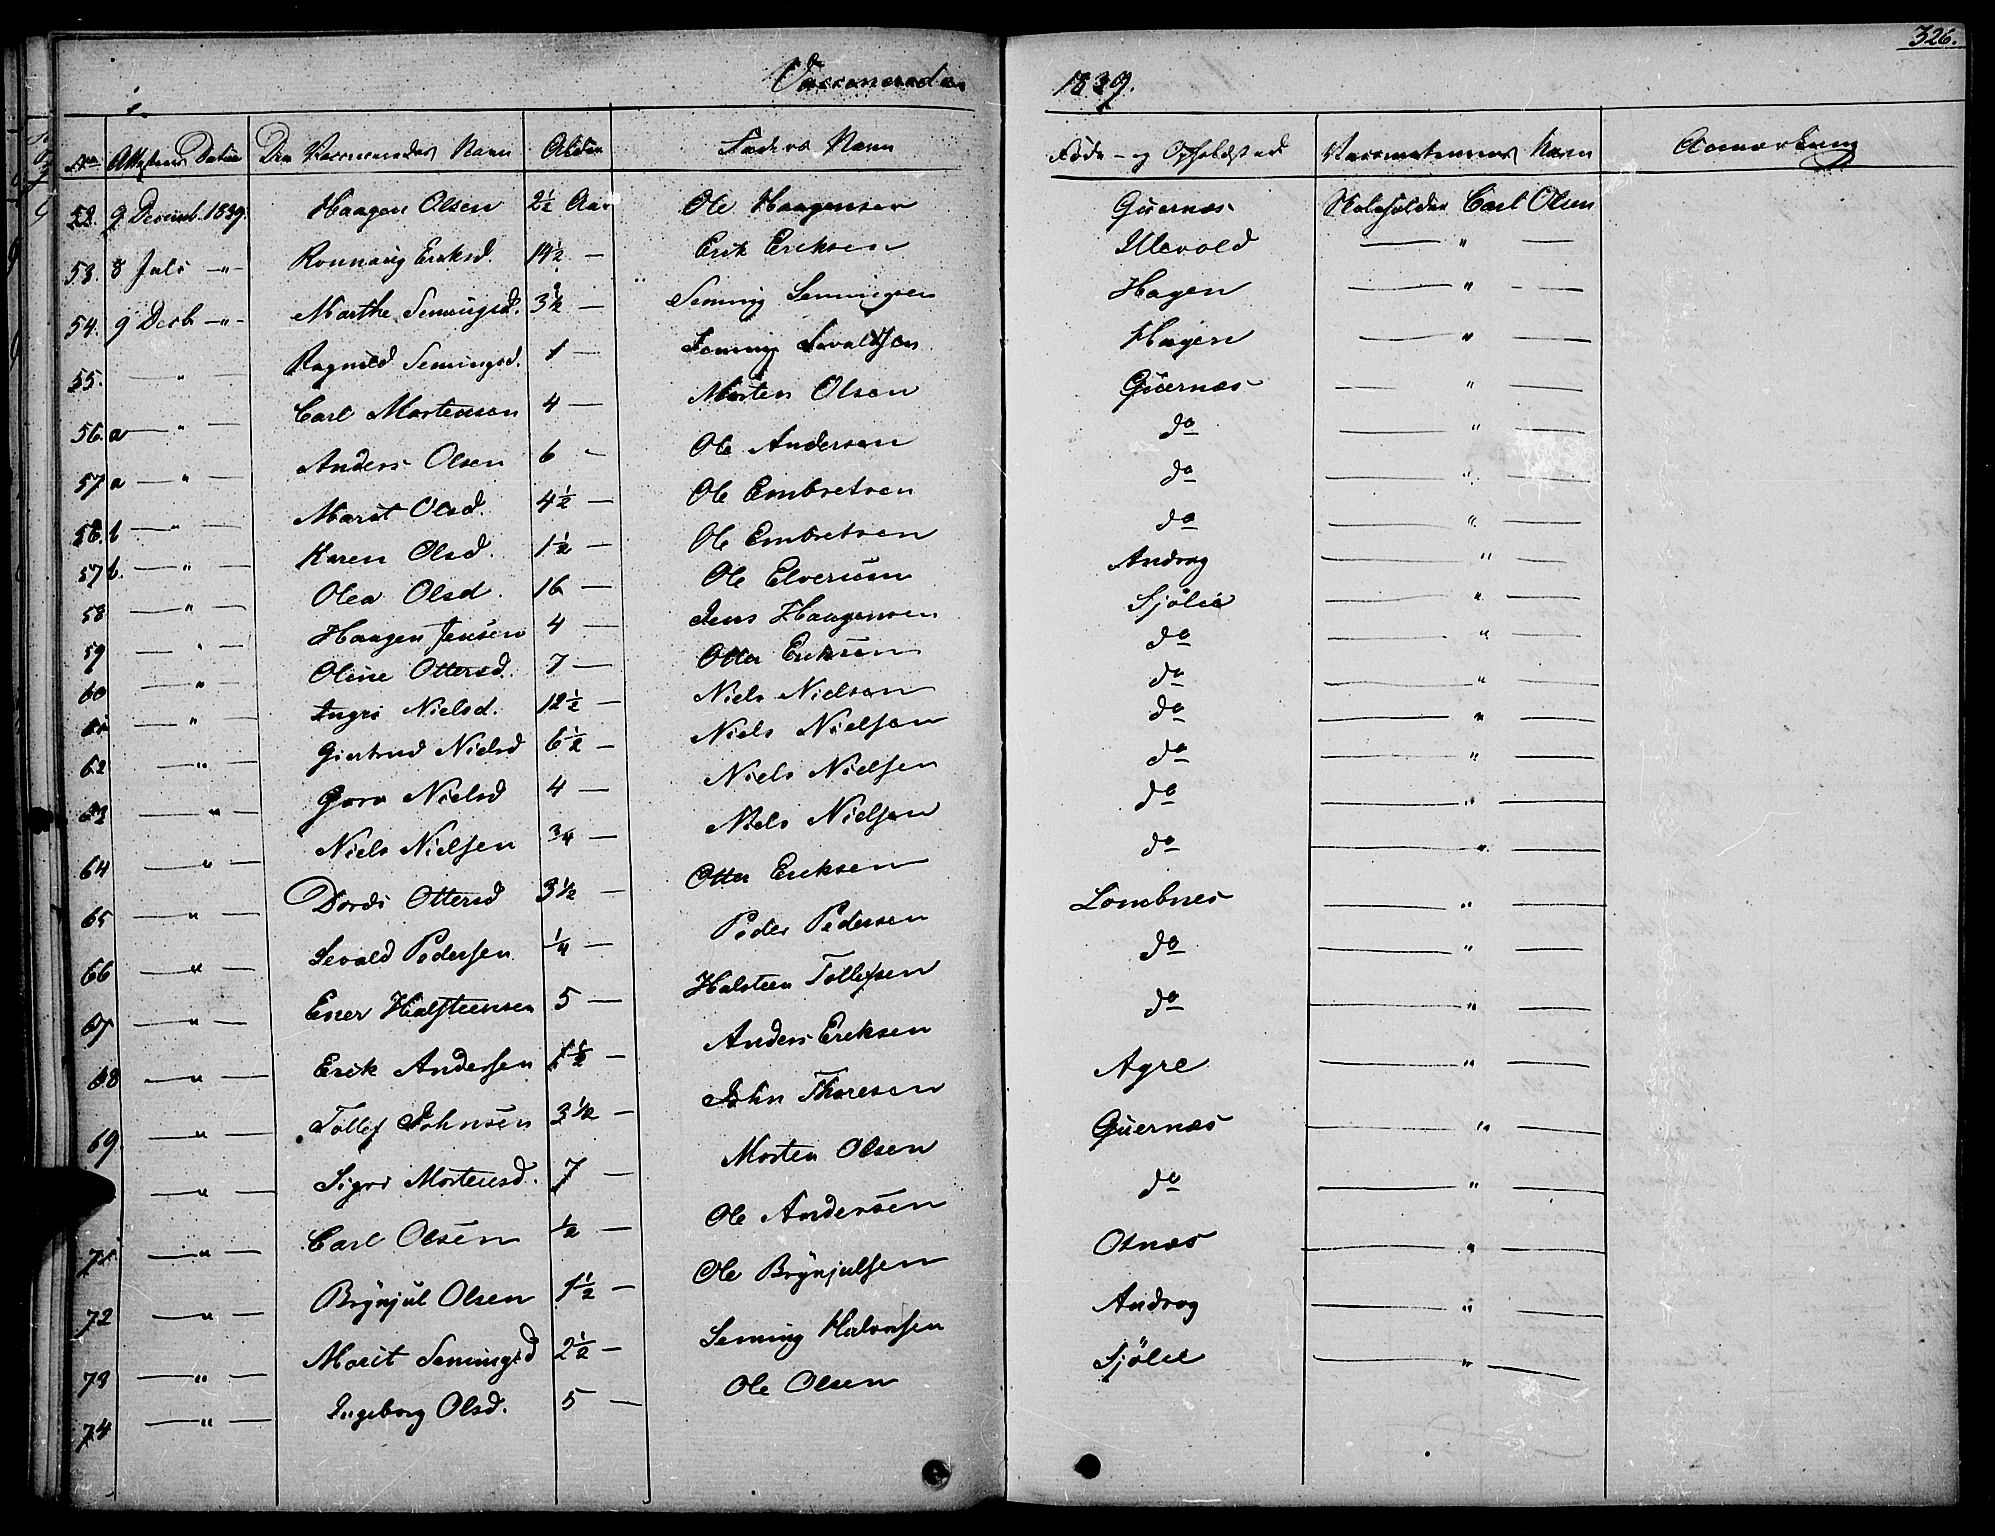 326.
Vaccinerede 1839.
No Attestens Datum Den Vaccineredes Navn Alder Faders Navn Føde- og Opholdsted Vaccinateurens Navn Anmærkning
52. 9 Decemb. 1839. Haagen Olsen 2½ Aar Ole Haagensen Guernæs Skoleholder Carl Olsen
53. 8 Juli -"- Ronnaug Eriksd. 14½ — Erik Eriksen Ulevold — " —
54. 9 Decb -"- Marthe Semingsd. 3½ — Seming Semingsen Hagen — " —
55. — " — Ragnild Semingsd. 1 — Seming Sevaldsen Hagen — " —
56. a — " — Carl Mortensen 4 — Morten Olsen Guernæs — " —
57 a — " — Anders Olsen 6 - Ole Andersen do — " —
56. b — " — Marit Olsd. 4½ — Ole Embretsen do — " —
57 b. — " — Karen Olsd. 1½ — Ole Embretsen do — " —
58 — " — Olea Olsd. 16 — Ole Elverum Andrag — " —
59 — " — Haagen Jensen 4 — Jens Haagensen Sjølie — " —
60 — " — Oline Ottersd. 7 — Otter Eriksen do — " —
61 — " — Ingri Nielsd. 12½ — Niels Nielsen do — " —
62 — " — Giertrud Nielsd 6½ — Niels Nielsen do — " —
63 — " — Goro Nielsd 4 — Niels Nielsen do — " —
64 — " — Niels Nielsen ¾ — Niels Nielsen do — " —
65 — " — Dordi Ottersd 3½ — Otter Eriksen do — " —
66 — " — Sevald Pedersen ¼ — Peder Pedersen Lombnes — " —
67 — " — Ener Halsteensen 5 — Halsteen Tollefsen do — " —
68 — " — Erik Andersen 1½ — Anders Eriksen do — " —
69. — " — Tollef Johnsen 3½ — John Thoresen Agre — " —
— " — Sigri Mortensd. 7 — Morten Olsen Guernæs — " —
71. — " — Carl Olsen ½ — Ole Andersen do — " —
72 — " — Brynjul Olsen 1½ — Ole Brynjulsen Otnæs — " —
73 — " — Marit Semingsd 2½ — Seming Halvorsen Andrag — " —
74 — " — Ingeborg Olsd. 5 — Ole Olsen Sjølie — " —